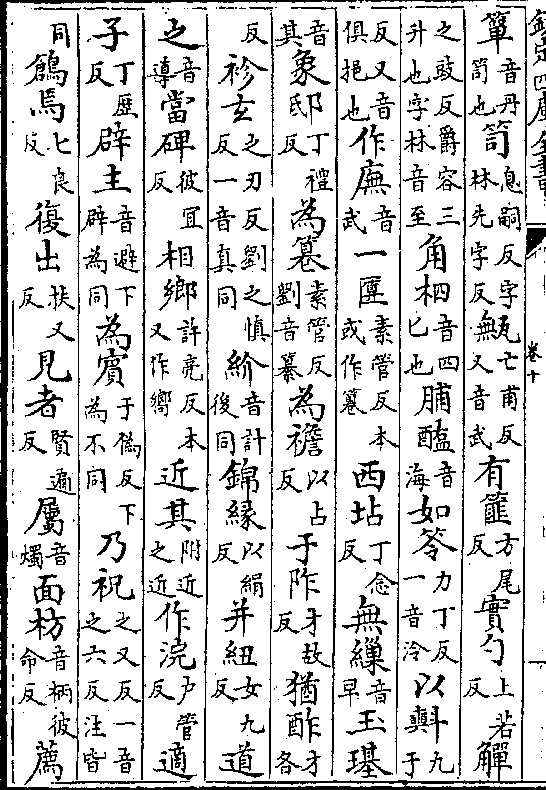 簞音丹笥也笥息嗣反字林先字反甒亡甫反又音武有篚方尾反實勺上若反觶
之豉反爵容三升也字林音至角柶音四匕也脯醢音海如笭力丁反一音泠以㪺九于
反又音俱挹也作廡音武一匴素管反本或作篹西坫丁念反無繅音早玉璂
音其象邸丁禮反為篹素管反劉音纂為襜以占反于阼才故反猶酢才各
反袗玄之刃反劉之慎反一音真同紒音計後同錦緣以絹反并紐女九反道
之音導當碑彼宜反相鄉許亮反本又作嚮近其附近之近作浣戶管反適
子丁歷反辟主音避下辟為同為賓于偽反下為不同乃祝之又反一音之六反注皆
同鶬焉七良反復出扶又反見者賢遍反屬音燭面枋音柄彼命反薦
欽定四庫全書
卷十